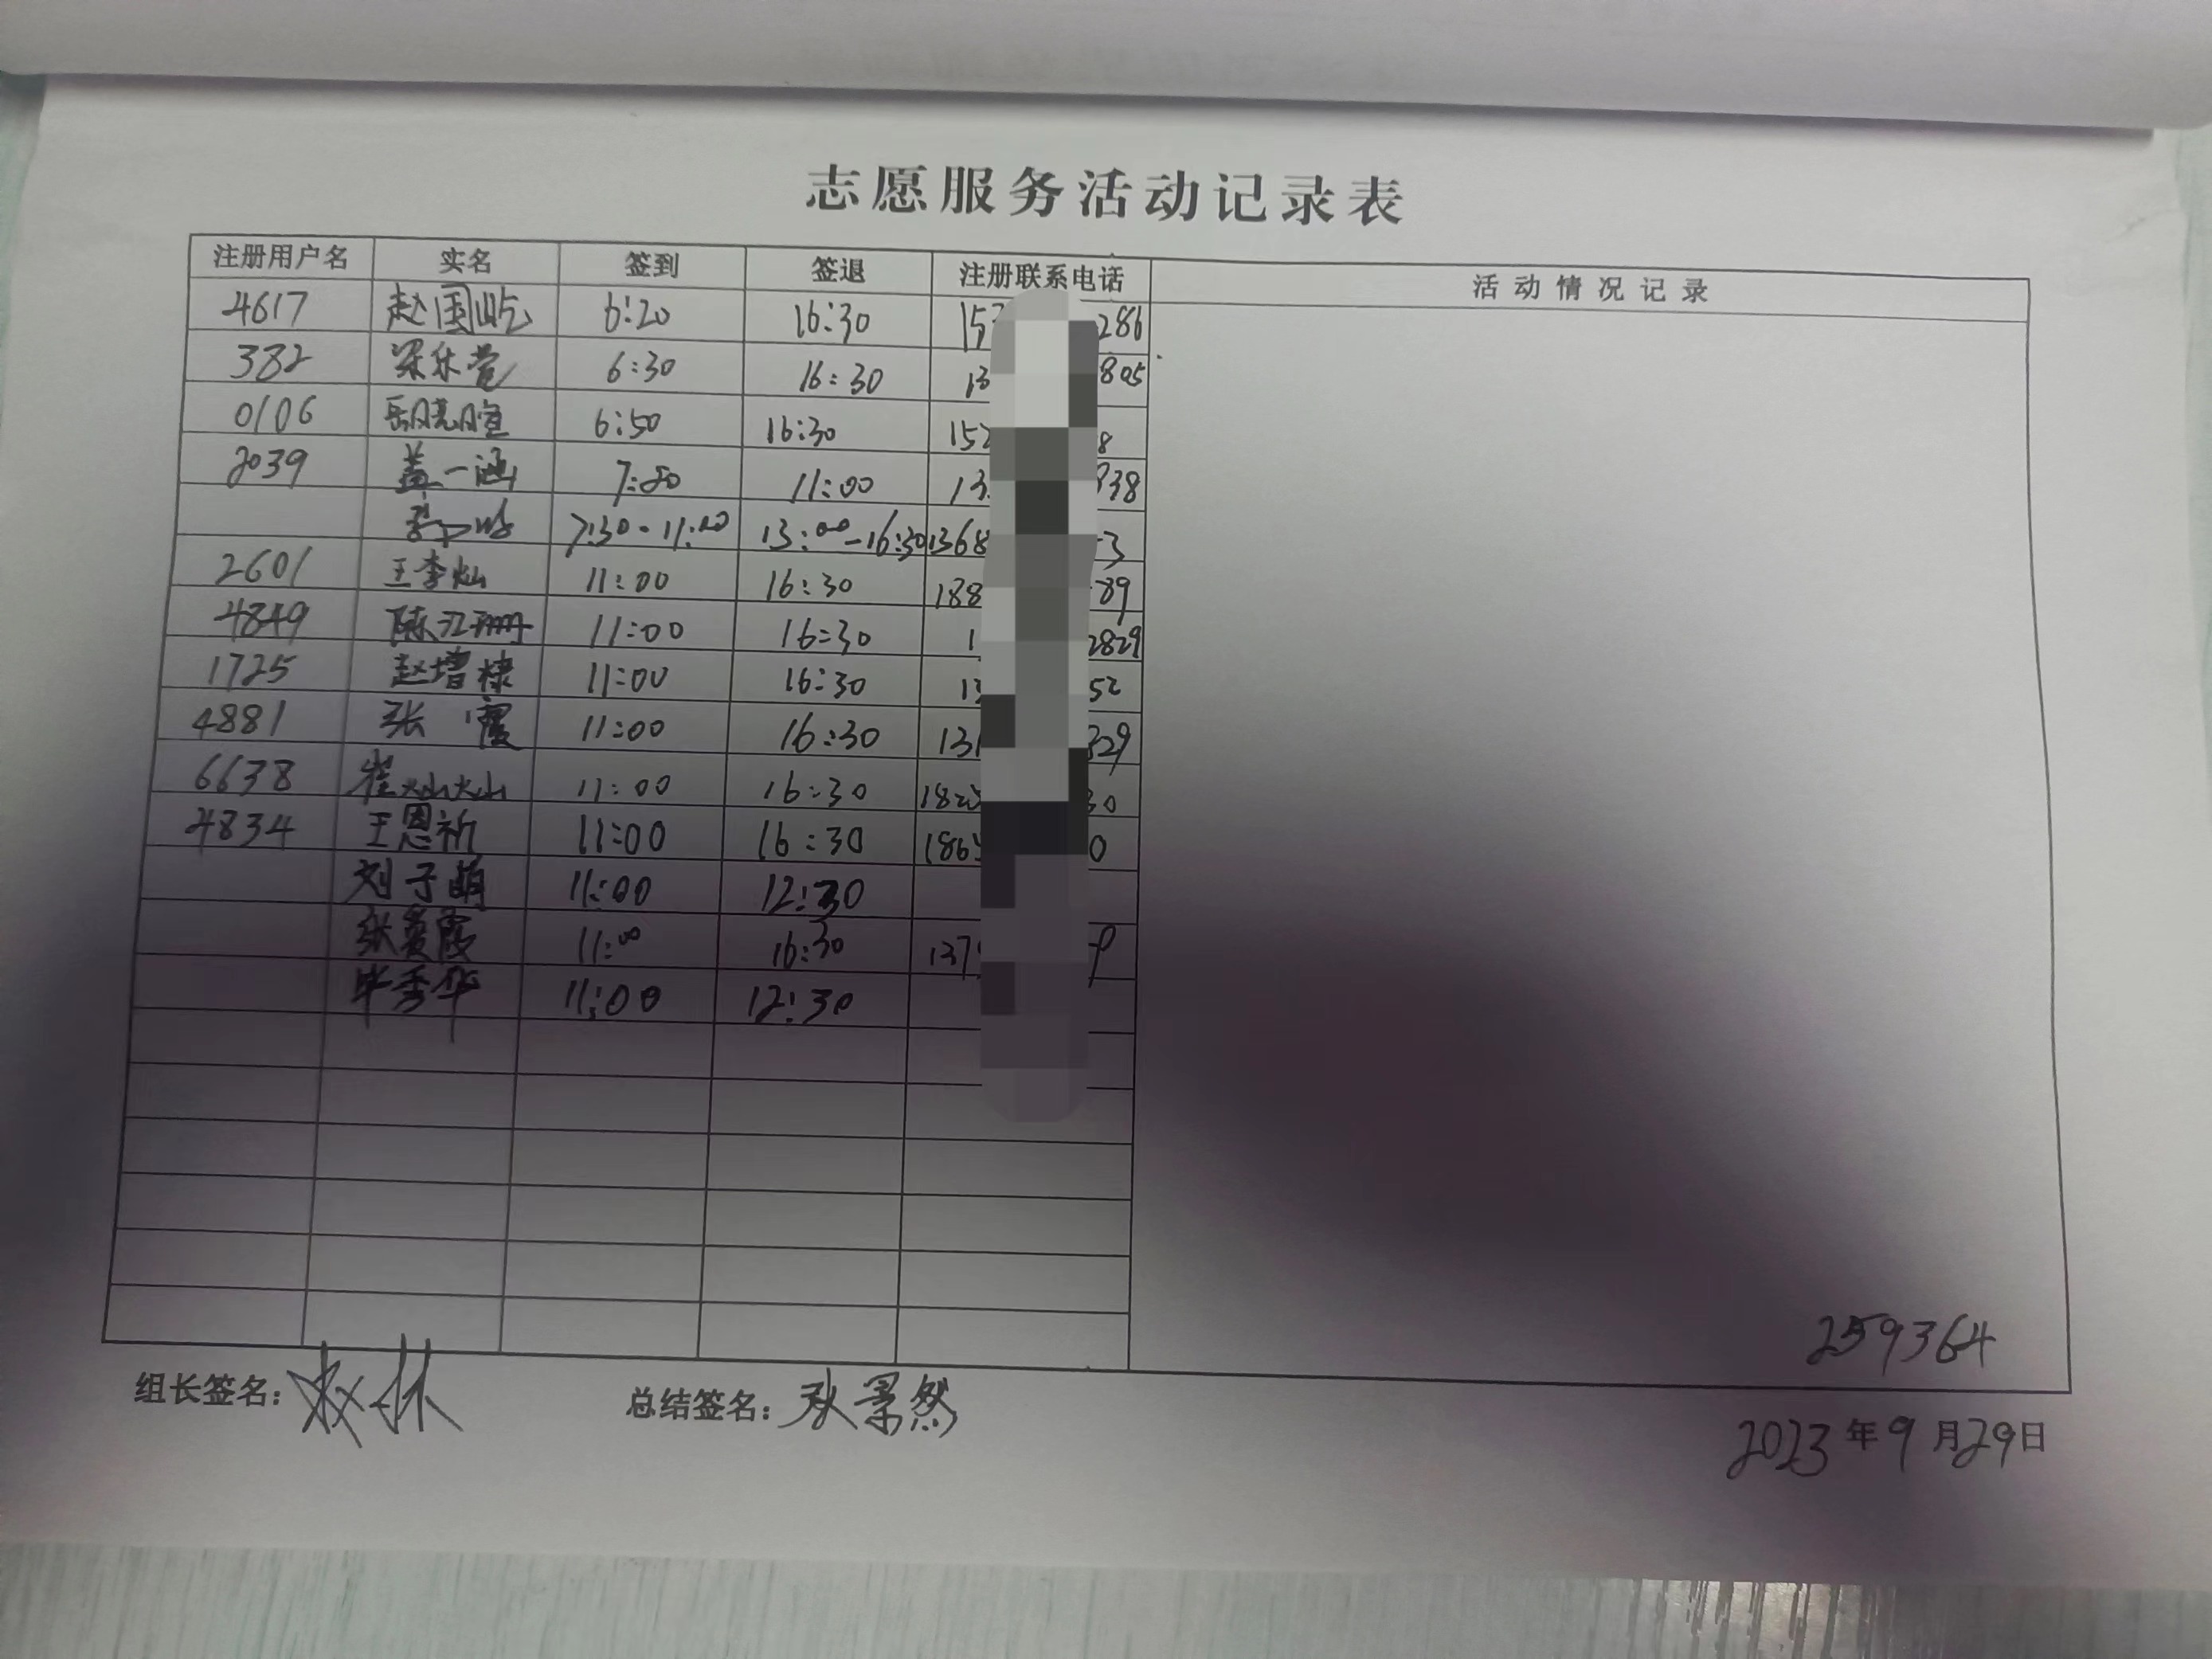 志愿服务活动记录表
注册用户名 实名 签到 签退 注册联系电话 活动情况记录
4617 赵国屹 6:20 16:30 153 286
382 梁乐萱 6:30 16:30 13 805
0106 6:50 16:30 152 8
2039 盖一涵 7:50 11:00 13 838
7:30-11:00 13:00-16:30 1368 3
2601 王李灿 11:00 16:30 188 89
4849 陈江珊 11:00 16:30 1 2829
1725 赵增棣 11:00 16:30 13 52
4881 张霞 11:00 16:30 131 329
6638 崔灿灿 11:00 16:30 182 30
4834 王恩祈 11:00 16:30 186 0
刘子萌 11:00 12:30
张爱霞 11:00 16:30 137 9
毕秀华 11:00 12:30
259364
组长签名: 总结签名: 景然
2023年9月29日